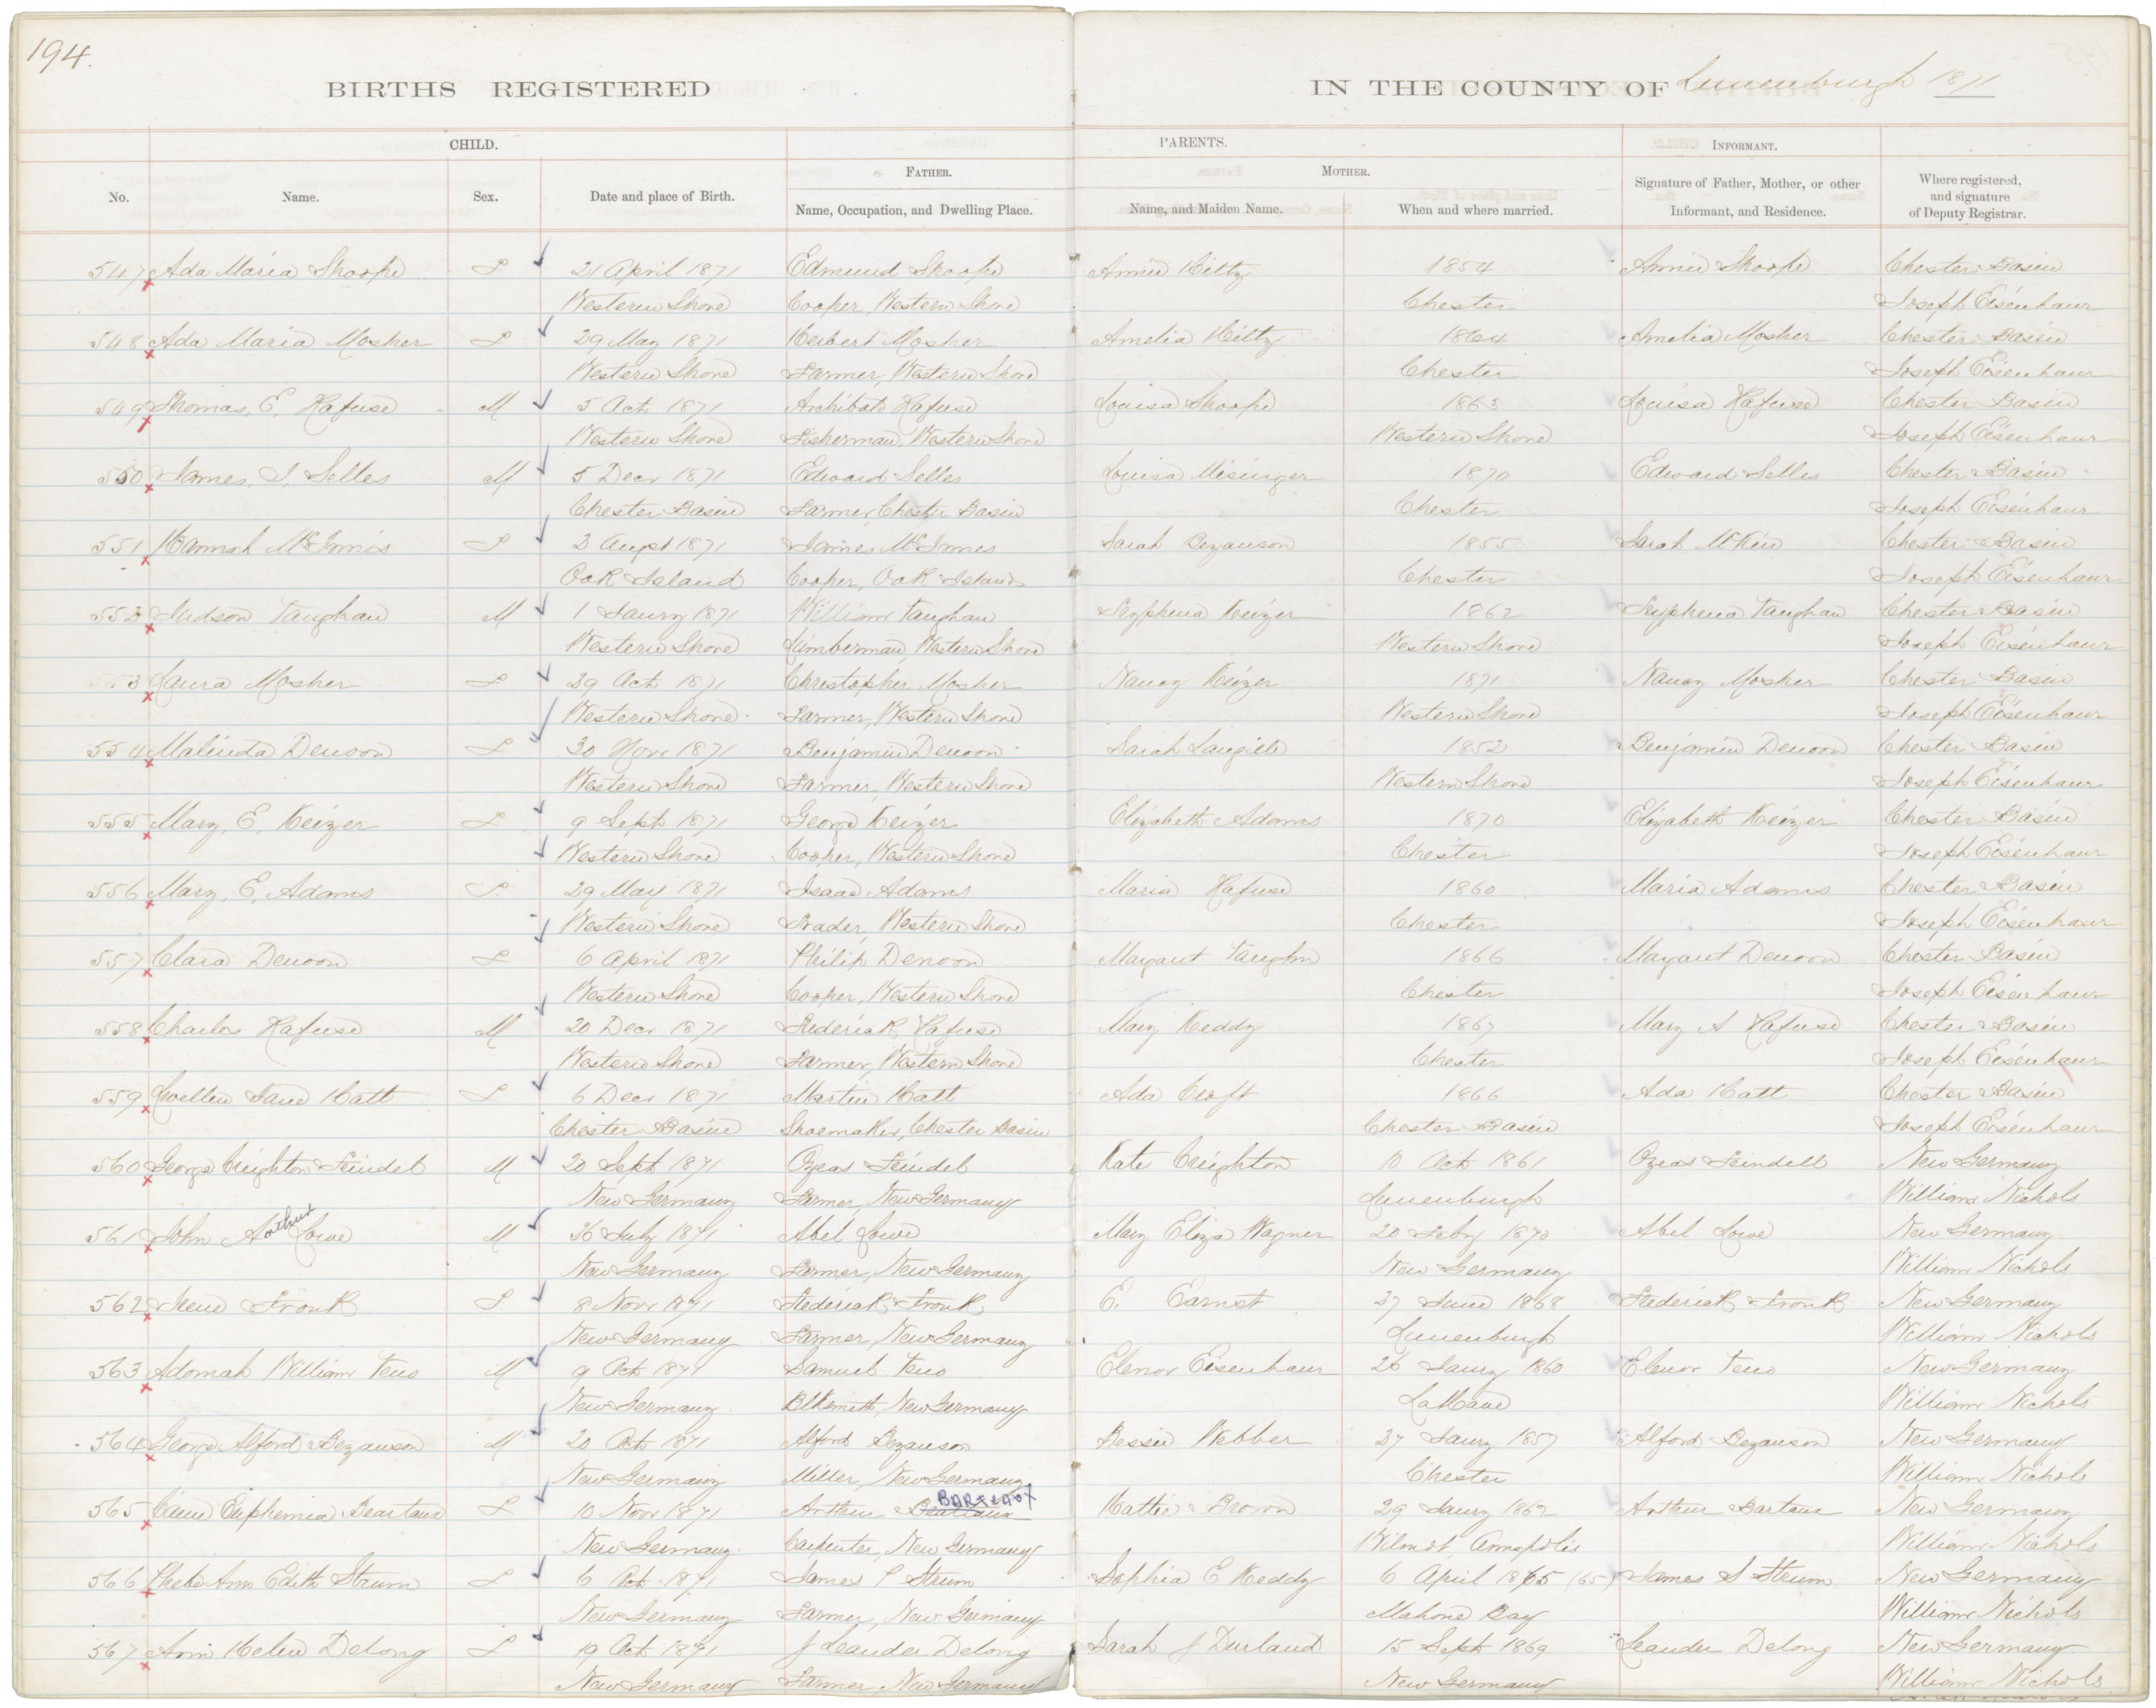 194.
BIRTHS REGISTERED IN THE COUNTY OF Lunenburgh 1871
CHILD. PARENTS. INFORMANT.
FATHER. MOTHER.
No. Name. Sex. Date and place of Birth. Name, Occupation, and Dwelling Place. Name, and Maiden Name. When and where married. Signature of Father, Mother, or other Informant, and Residence. Where registered, and signature of Deputy Registrar.
547 Ada Maria Shoope F 21 April 1871 Edmund Shoope Annie Hiltz 1854 Annie Shoope Chester Basin
Western Shore Cooper, Western Shore Chester Joseph Eisenhaur
548 Ada Maria Mosher F 29 May 1871 Herbert Mosher Amelia Hiltz 1864 Amelia Mosher Chester Basin
Western Shore Farmer, Western Shore Chester Joseph Eisenhaur
549 Thomas, E. Hafuse M 5 Oct 1871 Archibald Hafuse Louisa Shoope 1863 Louisa Hafuse Chester Basin
Western Shore Fisherman, Western Shore Western Shore Joseph Eisenhaur
550 James, I. Selles M 5 Decr 1871 Edward Selles Louisa Misinger 1870 Edward Selles Chester Basin
Chester Basin Farmer, Chester Basin Chester Joseph Eisenhaur
551 Hannah McInnis F 3 Augst 1871 James McInnes Sarah Bezanson 1855 Sarah Chester Basin
Oak Island Cooper, Oak Island Chester Joseph Eisenhaur
552 Judson Vaughan M 1 Jaury 1871 William Vaughan Seyphena Keizer 1862 Seyphena Vaughan Chester Basin
Western Shore Lumberman, Western Shore Western Shore Joseph Eisenhaur
553 Laura Mosher F 29 Oct 1871 Christopher Mosher Nancy Keizer 1871 Nancy Mosher Chester Basin
Western Shore Farmer, Western Shore Western Shore Joseph Eisenhaur
554 Malinda Denoon F 30 Novr 1871 Benjamin Denoon Sarah Langille 1852 Benjamin Denoon Chester Basin
Western Shore Farmer, Western Shore Western Shore Joseph Eisenhaur
555 Mary, E, Keizer F 9 Sept 1871 George Keizer Elizabeth Adams 1870 Elizabeth Keizer Chester Basin
Western Shore Cooper, Western Shore Chester Joseph Eisenhaur
556 Mary, E, Adams F. 29 May 1871 Isaac Adams Maria Hafuse 1860 Maria Adams Chester Basin
Western Shore Trader, Western Shore Chester Joseph Eisenhaur
557 Clara Denoon F 6 April 1871 Philip Denoon Margaret Vaughn 1866 Margaret Denoon Chester Basin
Western Shore Cooper, Western Shore Chester Joseph Eisenhaur
558 Charles Hafuse M 20 Decr 1871 Frederick Hafuse Mary Keddy 1867 Mary A Hafuse Chester Basin
Western Shore Farmer, Western Shore Chester Joseph Eisenhaur
559 Lwellen Jane Hatt F 6 Decr 1871 Martin Hatt Ada Croft 1866 Ada Hatt Chester Basin
Chester Basin Shoemaker, Chester Basin Chester Basin Joseph Eisenhaur
560 George Creighton Feindel M 20 Sept 1871 Ozeas Feindel Kate Creighton 10 Oct 1861 Ozeas Feindell New Germany
New Germany Farmer, New Germany Lunenburgh William Nichols
561 John Arthur Lowe M 26 July 1871 Abel Lowe Mary Eliza Wagner 20 Feby 1870 Abel Lowe New Germany
New Germany Farmer, New Germany New Germany William Nichols
562 Irene Fronk F 8 Novr 1871 Frederick Fronk E. Earnst 27 June 1868 Frederick Fronk New Germany
New Germany Farmer, New Germany Lunenburgh William Nichols
563 Adomah William Veno M 9 Oct 1871 Samuel Veno Elenor Eisenhaur 26 Jaury 1860 Elenor Veno New Germany
New Germany Blksmith, New Germany LaHave William Nichols
564 George Alford Bezanson M 20 Oct 1871 Alford Bezanson Bessie Webber 27 Jaury 1857 Alford Bezanson New Germany
New Germany Miller, New Germany Chester William Nichols
565 Euphemia F 10 Novr 1871 Arthur BARTEAUX Hattie Brown 29 Jaury 1862 Arthur Bartaux New Germany
New Germany Carpenter, New Germany Wilmot, Annapolis William Nichols
566 Phebe Ann Edith Strum F 6 Oct 1871 James Strum Sophia E Keddy 6 April 1865 (65) James S Strum New Germany
New Germany Farmer, New Germany Mahone Bay William Nichols
567 Ann Helen Delong F 19 Oct 1871 J Leander Delong Sarah J Durland 15 Sept 1869 Leander Delong New Germany
New Germany Farmer, New Germany New Germany William Nichols